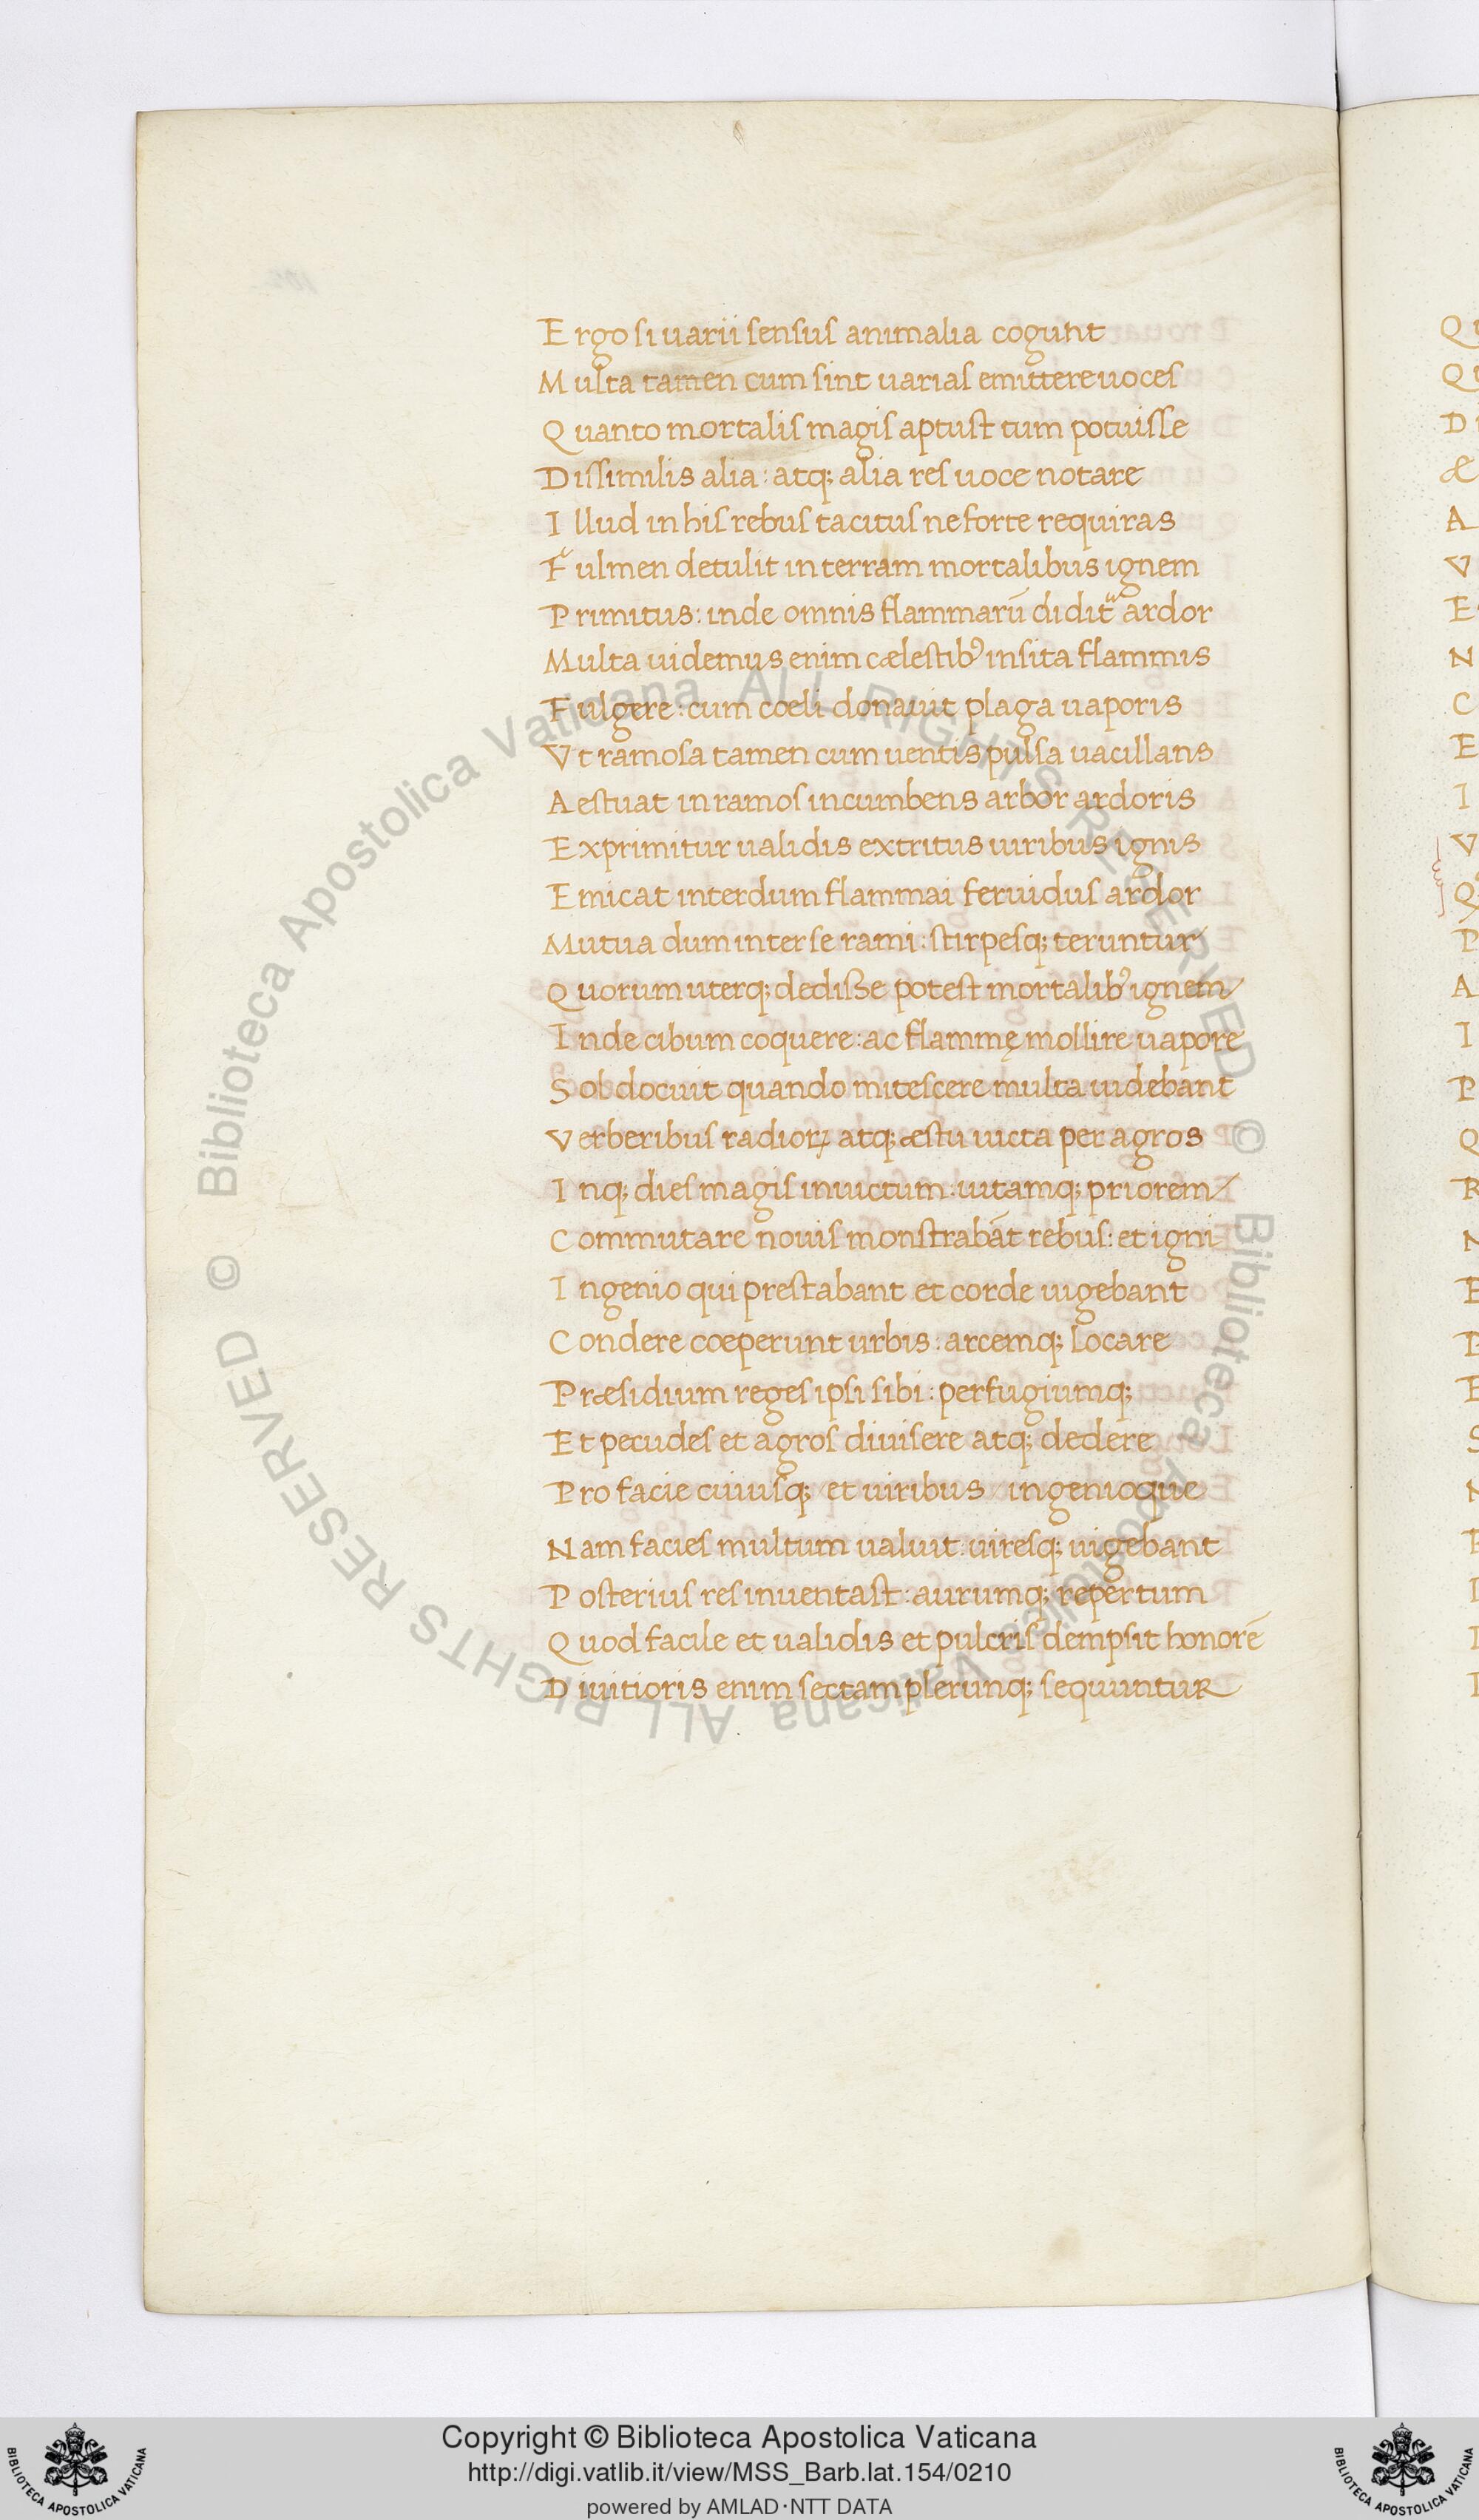 Ergo si uarii sensus animalia cogunt
Multa tamen cum sint uarias emittere uoces
Quanto mortalis magis aptust tum potuisse
Dissimilis alia : atq; alia res uoce notare
Illud in his rebus tacitus ne forte requiras
Fulmen detulit in terram mortalibus ignem
Primitus : inde omnis flammarū didit᷑ ardor
Multa uidemus enim cælestibꝰ insita flammis
Fulgere : cum coeli donauit plaga uaporis
Vt ramosa tamen cum uentis pulsa uacillans
Aestuat in ramos incumbens arbor ardoris
Exprimitur ualidis extritus uiribus ignis
Emicat interdum flammai feruidus ardor
Mutua dum inter se rami : stirpesq; teruntur
Quorum uterq; dedisse potest mortalibꝰ ignem
Inde cibum coquere : ac flammę mollire uapore
Sol docuit quando mitescere multa uidebant
Verberibus radioꝝ atq; æstu uicta per agros
Inq; dies magis inuictum : uitamq; priorem
Commutare nouis monstrabāt rebus : et igni
Ingenio qui prestabant et corde uigebant
Condere coeperunt urbis : arcemq; locare
Præsidium reges ipsi sibi : perfugiumq;
Et pecudes et agros diuisere atq; dedere
Pro facie cuiusq; et uiribus ingenioque
Nam facies multum ualuit : uiresq; uigebant
Posterius res inuentast : aurumq; repertum
Quod facile et ualidis et pulcris dempsit honorē
Diuitioris enim sectam plerunq; sequuntur
© Biblioteca Apostolica Vaticana ALL RIGHTS RESERVED © Biblioteca Apostolica Vaticana ALL RIGHTS RESERVED
Copyright © Biblioteca Apostolica Vaticana
http://digi.vatlib.it/view/MSS_Barb.lat.154/0210
powered by AMLAD·NTT DATA
BIBLIOTECA APOSTOLICA VATICANA
BIBLIOTECA APOSTOLICA VATICANA